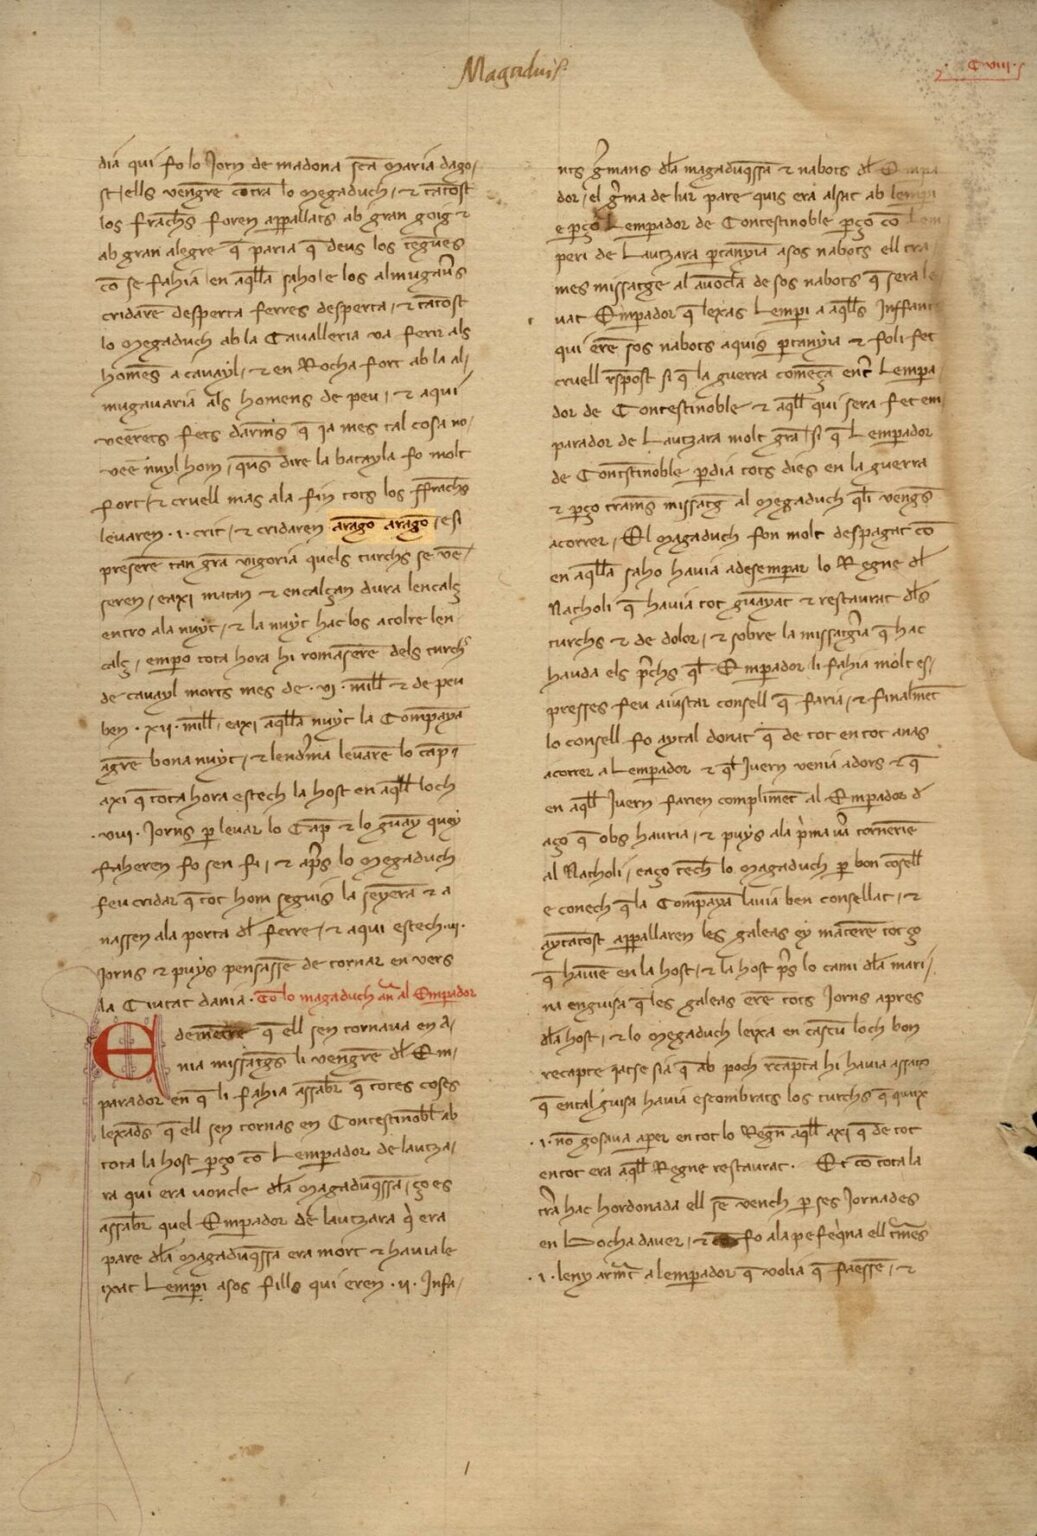 Magaduis
C viii
dia qui fo lo Jorn de madona sca Maria dago-
st ells vengre contra lo Megaduch, et tantost
los franchs foren appallats ab gran goig et
ab gran alegre que paria que deus los tengues
com se fahia en aqlla saho e los almugauers
cridaren desperta ferres desperta, et tantost
lo Megaduch ab la Caualleria va ferir als
homens a cauayl, et en Rocha fort ab la al-
mugauaria als homens de peu, et aqui
veerets fets darms que ja mes tal cosa no
vee nuyl hom, queus dire la batayla fo molt
fort et cruell mas ala fin tots los ffrachs
leuaren .i. crit, et cridaren arago arago, e si
preseren tan gra vigoria quels turchs se ven-
seren, e axi matan et encalçan dura lencalç
entro ala nuyt, et la nuyt hac los a tolre len-
calç, empero tota hora hi romaseren dels turchs
de cauayl morts mes de .vi. mill et de peu
ben .xii. mill, e axi aqlla nuyt la Companya
agre bona nuyt, et lendema leuaren lo camp
axi que tota hora estech la host en aqll loch
.viii. Jorns per leuar lo Camp et lo guay quey
faheren fo sen fi, et apres lo Megaduch
feu cridar que tot hom seguis la senyera et a
nassen ala porta del ferre, et aqui estech .iii.
Jorns et puys pensassen de tornar en vers
la Ciutat dania. Com lo magaduch ana al Emparador
E demetre que ell sen tornaua en A-
nia missatges li vengren del Em-
parador en que li fahia assaber que totes coses
lexades que ell sen tornas en Contestinobbl ab
tota la host perço com Lemperador de lautza-
ra qui era uoncle dela Magaduqssa, ço es
assaber quel Emperador de lautzara qui era
pare dela Magaduqssa era mort et hauia le
ixat Lemperi asos fills qui eren .ii. Infa-
nts germans dela magaduqssa et nabots del Empa
dor, el germa de lur pare quis era alsat ab lempi
e perço Lemperador de Contestinoble perço com lem
peri de Lautzara pertanyia asos nabots ell tra
mes missatge al auoncle de sos nabots que sera le
uat Emperador que lexas Lemperi a aqlls Inffants
qui eren sos nabots aquis pertanyia et foli fet
cruell respost si que la guerra comença entre Lempera-
dor de Contestinoble et aqll qui sera fet em
parador de Lautzara molt gra si que Lemperador
de Contestinoble perdia tots dies en la guerra
et perço trames missatge al Megaduch qli vengs
acorrer, El magaduch fon molt despagat com
en aqlla saho hauia adesemparar lo Regne del
Natholi que hauia tot guayat et restaurat dels
turchs et de dolor, et sobre la missatgeria que hac
hauda els prechs qel Emperador li fahia molt es-
presses feu aiustar consell que faria, et finalment
lo consell fo aytal donat que de tot en tot anas
acorrer a Lemperador et qel Juern venia adors et que
en aqll Juern farien compliment al Emperador d
aço que obs hauria, et puys ala prima vera tornerien
al Natholi, e aço tench lo magaduch per bon cosell
e conech que la Companya lauia ben consellat, et
aytantost appallaren les galeas ey materen tot ço
que hauien en la host, et la host pres lo cami dela mari-
na enguisa que les galeas eren tots Jorns apres
dela host, et lo Megaduch leixa en cascun loch bon
recapte jatse sia que ab poch recapta hi hauia assats
que en tal guisa hauia escombrats los turchs que quaix
.i. no gosaua aper en tot lo Regne aqll axi que de tot
en tot era aqll Regne restaurat. Et com tota la
terra hac hordonada ell sen vench per ses Jornades
en Bocha dauer, et fo ala pefeqna ell trames
.i. leny armat a lemperador que volia que faessen, et